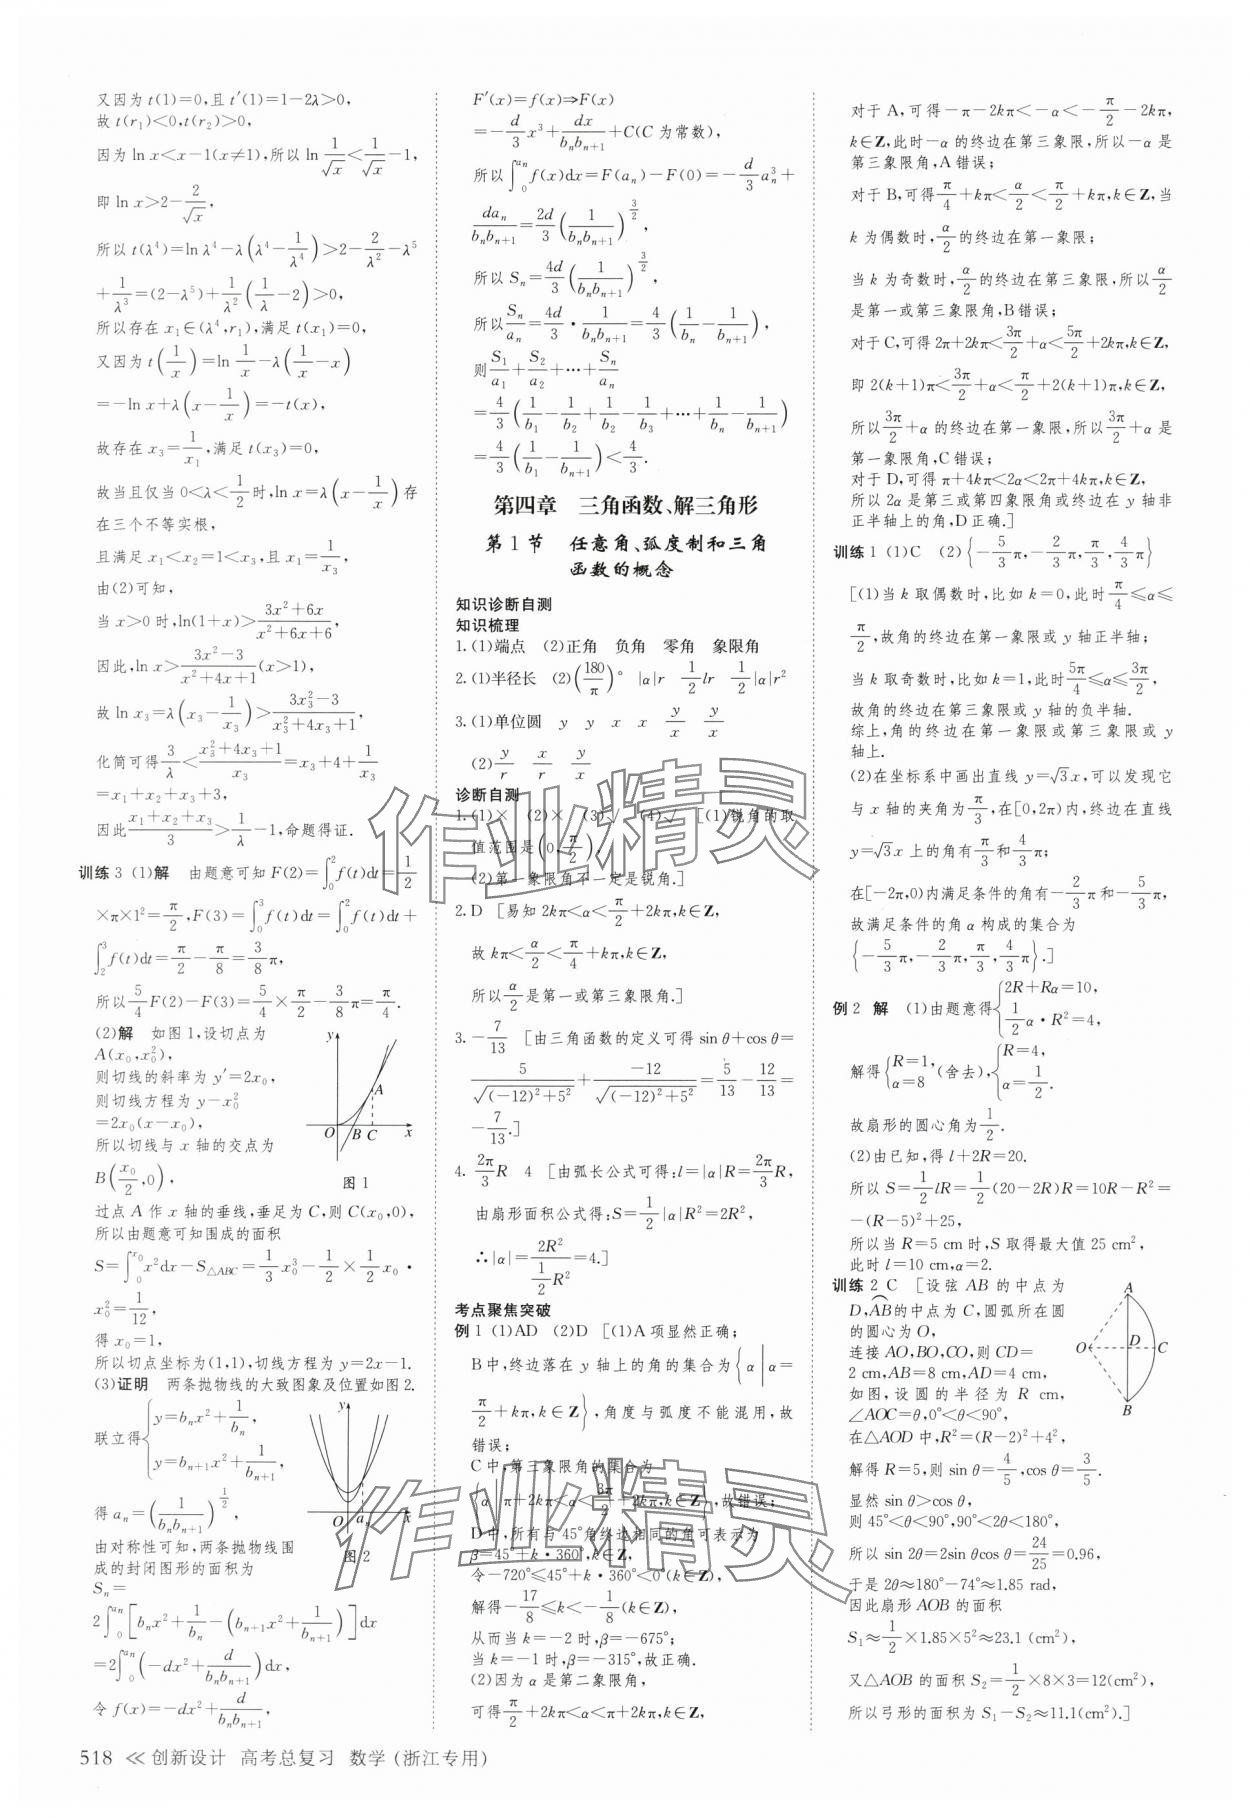 又因为 t(1)=0,且 t′(1)=1-2λ>0,
故 t(r₁)<0,t(r₂)>0,
因为 ln x<x-1(x≠1),所以 ln 1/√x<1/√x-1,
即 ln x>2-2/√x,
所以 t(λ⁴)=ln λ⁴-λ(λ⁴-1/λ⁴)>2-2/λ²-λ⁵
+1/λ³=(2-λ⁵)+1/λ²(1/λ-2)>0,
所以存在 x₁∈(λ⁴,r₁),满足 t(x₁)=0,
又因为 t(1/x)=ln 1/x-λ(1/x-x)
=-ln x+λ(x-1/x)=-t(x),
故存在 x₃=1/x₁,满足 t(x₃)=0,
故当且仅当 0<λ<1/2时,ln x=λ(x-1/x)存
在三个不等实根,
且满足 x₁<x₂=1<x₃,且 x₁=1/x₃,
由(2)可知,
当 x>0 时,ln(1+x)>(3x²+6x)/(x²+6x+6),
因此,ln x>(3x²-3)/(x²+4x+1)(x>1),
故 ln x₃=λ(x₃-1/x₃)>(3x₃²-3)/(x₃²+4x₃+1),
化简可得3/λ<(x₃²+4x₃+1)/x₃=x₃+4+1/x₃
=x₁+x₂+x₃+3,
因此(x₁+x₂+x₃)/3>1/λ-1,命题得证.
训练 3 (1)解 由题意可知 F(2)=∫₀²f(t)dt=1/2
×π×1²=π/2,F(3)=∫₀³f(t)dt=∫₀²f(t)dt+
∫₂³f(t)dt=π/2-π/8=3/8π,
所以5/4F(2)-F(3)=5/4×π/2-3/8π=π/4.
(2)解 如图 1,设切点为
A(x₀,x₀²),
则切线的斜率为 y′=2x₀,
则切线方程为 y-x₀²
=2x₀(x-x₀),
所以切线与 x 轴的交点为
B(x₀/2,0),
y
A
O B C x
图 1
过点 A 作 x 轴的垂线,垂足为 C,则 C(x₀,0),
所以由题意可知围成的面积
S=∫₀^x₀ x²dx-S△ABC=1/3x₀³-1/2×x₀/2·
x₀²=1/12,
得 x₀=1,
所以切点坐标为(1,1),切线方程为 y=2x-1.
(3)证明 两条抛物线的大致图象及位置如图 2.
联立得{y=bₙx²+1/bₙ,
y=bₙ₊₁x²+1/bₙ₊₁,
得 aₙ=(1/(bₙbₙ₊₁))^(1/2),
由对称性可知,两条抛物线围
成的封闭图形的面积为
y
O aₙ x
图 2
Sₙ=
2∫₀^aₙ[bₙx²+1/bₙ-(bₙ₊₁x²+1/bₙ₊₁)]dx
=2∫₀^aₙ(-dx²+d/(bₙbₙ₊₁))dx,
令 f(x)=-dx²+d/(bₙbₙ₊₁),
F′(x)=f(x)⇒F(x)
=-d/3x³+dx/(bₙbₙ₊₁)+C(C 为常数),
所以∫₀^aₙ f(x)dx=F(aₙ)-F(0)=-d/3aₙ³+
daₙ/(bₙbₙ₊₁)=2d/3(1/(bₙbₙ₊₁))^(3/2),
所以 Sₙ=4d/3(1/(bₙbₙ₊₁))^(3/2),
所以Sₙ/aₙ=4d/3·1/(bₙbₙ₊₁)=4/3(1/bₙ-1/bₙ₊₁),
则S₁/a₁+S₂/a₂+…+Sₙ/aₙ
=4/3(1/b₁-1/b₂+1/b₂-1/b₃+…+1/bₙ-1/bₙ₊₁)
=4/3(1/b₁-1/bₙ₊₁)<4/3.
第四章 三角函数、解三角形
第 1 节 任意角、弧度制和三角
函数的概念
知识诊断自测
知识梳理
1.(1)端点 (2)正角 负角 零角 象限角
2.(1)半径长 (2)(180/π)° |α|r 1/2lr 1/2|α|r²
3.(1)单位圆 y y x x y/x y/x
(2)y/r x/r y/x
诊断自测
1.(1)× (2)× (3)√ (4)√ [(1)锐角的取
值范围是(0,π/2).
(2)第一象限角不一定是锐角.]
2.D [易知 2kπ<α<π/2+2kπ,k∈Z,
故 kπ<α/2<π/4+kπ,k∈Z,
所以α/2是第一或第三象限角.]
3.-7/13 [由三角函数的定义可得 sin θ+cos θ=
5/√((-12)²+5²)+-12/√((-12)²+5²)=5/13-12/13=
-7/13.]
4.2π/3R 4 [由弧长公式可得:l=|α|R=2π/3R,
由扇形面积公式得:S=1/2|α|R²=2R²,
∴|α|=2R²/(1/2R²)=4.]
考点聚焦突破
例 1 (1)AD (2)D [(1)A 项显然正确;
B中,终边落在 y 轴上的角的集合为{α|α=
π/2+kπ,k∈Z},角度与弧度不能混用,故
错误;
C 中,第三象限角的集合为
{α|π+2kπ<α<3π/2+2kπ,k∈Z},故错误;
D 中,所有与 45°角终边相同的角可表示为
β=45°+k·360°,k∈Z,
令-720°≤45°+k·360°<0°(k∈Z),
解得-17/8≤k<-1/8(k∈Z),
从而当 k=-2 时,β=-675°;
当 k=-1 时,β=-315°,故正确.
(2)因为 α 是第二象限角,
可得π/2+2kπ<α<π+2kπ,k∈Z,
对于 A,可得-π-2kπ<-α<-π/2-2kπ,
k∈Z,此时-α 的终边在第三象限,所以-α 是
第三象限角,A 错误;
对于 B,可得π/4+kπ<α/2<π/2+kπ,k∈Z,当
k 为偶数时,α/2的终边在第一象限;
当 k 为奇数时,α/2的终边在第三象限,所以α/2
是第一或第三象限角,B错误;
对于 C,可得 2π+2kπ<3π/2+α<5π/2+2kπ,k∈Z,
即 2(k+1)π<3π/2+α<π/2+2(k+1)π,k∈Z,
所以3π/2+α 的终边在第一象限,所以3π/2+α 是
第一象限角,C 错误;
对于 D,可得 π+4kπ<2α<2π+4kπ,k∈Z,
所以 2α 是第三或第四象限角或终边在 y 轴非
正半轴上的角,D 正确.]
训练 1 (1)C (2){-5/3π,-2/3π,π/3,4/3π}
[(1)当 k 取偶数时,比如 k=0,此时π/4≤α≤
π/2,故角的终边在第一象限或 y 轴正半轴;
当 k 取奇数时,比如 k=1,此时5π/4≤α≤3π/2,
故角的终边在第三象限或 y 轴的负半轴.
综上,角的终边在第一象限或第三象限或 y
轴上.
(2)在坐标系中画出直线 y=√3x,可以发现它
与 x 轴的夹角为π/3,在[0,2π)内,终边在直线
y=√3x 上的角有π/3和4π/3;
在[-2π,0)内满足条件的角有-2/3π和-5/3π,
故满足条件的角 α 构成的集合为
{-5/3π,-2/3π,π/3,4/3π}.]
例 2 解 (1)由题意得{2R+Rα=10,
1/2α·R²=4,
解得{R=1,α=8(舍去),{R=4,α=1/2.
故扇形的圆心角为1/2.
(2)由已知,得 l+2R=20.
所以 S=1/2lR=1/2(20-2R)R=10R-R²=
-(R-5)²+25,
所以当 R=5 cm时,S 取得最大值 25 cm²,
此时 l=10 cm,α=2.
训练 2 C [设弦 AB 的中点为
D,AB⌒的中点为 C,圆弧所在圆
的圆心为 O,
连接 AO,BO,CO,则 CD=
2 cm,AB=8 cm,AD=4 cm,
如图,设圆的半径为 R cm,
∠AOC=θ,0°<θ<90°,
A
O D C
B
在△AOD 中,R²=(R-2)²+4²,
解得 R=5,则 sin θ=4/5,cos θ=3/5.
显然 sin θ>cos θ,
则 45°<θ<90°,90°<2θ<180°,
所以 sin 2θ=2sin θcos θ=24/25=0.96,
于是 2θ≈180°-74°≈1.85 rad,
因此扇形 AOB 的面积
S₁≈1/2×1.85×5²≈23.1 (cm²),
又△AOB 的面积 S₂=1/2×8×3=12(cm²),
所以弓形的面积为 S₁-S₂≈11.1(cm²).]
518 ≪ 创新设计 高考总复习 数学(浙江专用)
作业精灵
作业精灵